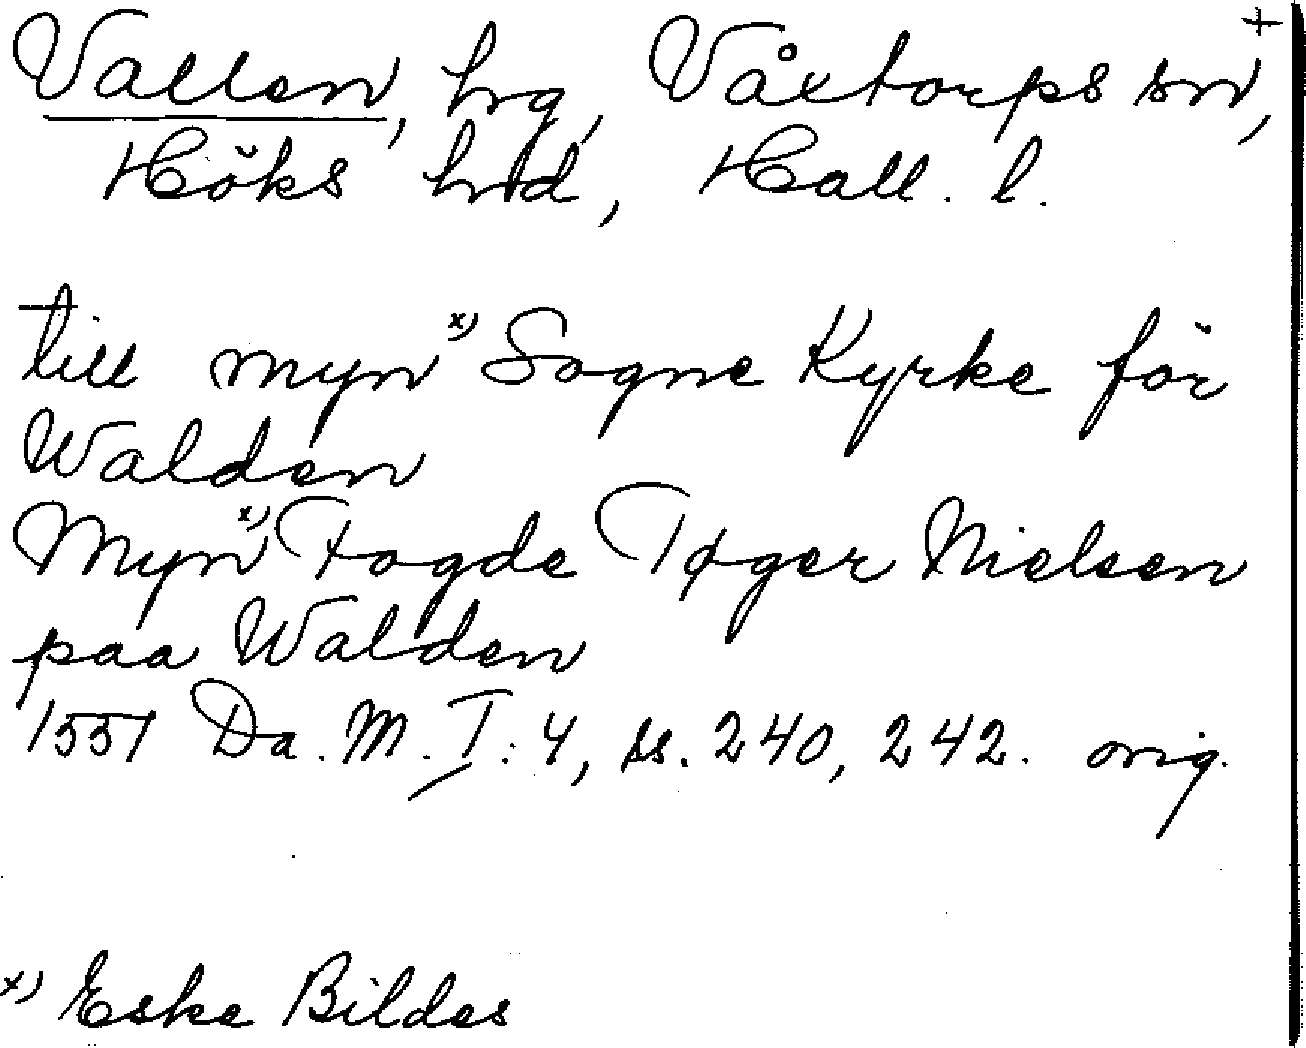 +
Vallen, hrg, Våxtorps sn,
Höks hrd, Hall. l.
till myn x) Sogne Kyrke for
Walden
Myn x) Fogde Tøger Nielsen
paa Walden
1551 Da. M. I: 4, ss. 240, 242. orig.
x) Eske Bildes